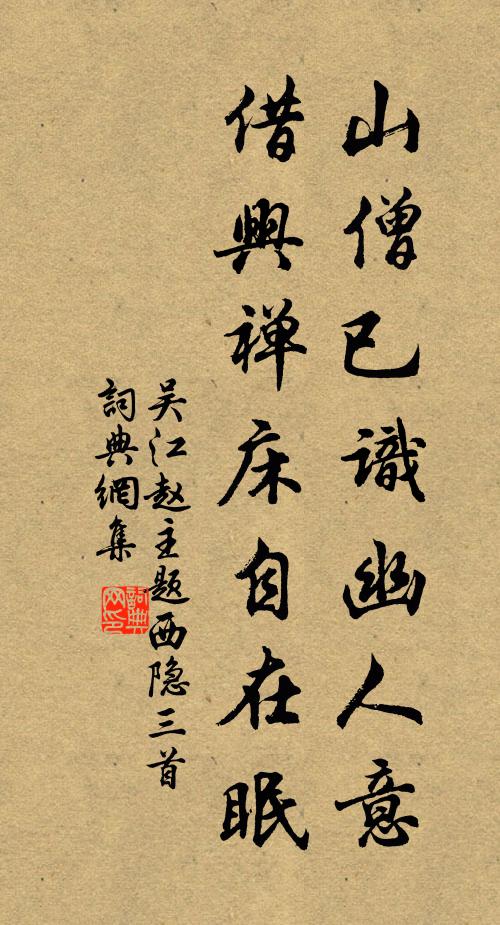 山僧已識幽人意
借與禅床自在眠
吴江赵主题西隐三首
詞典網集
詞典网印